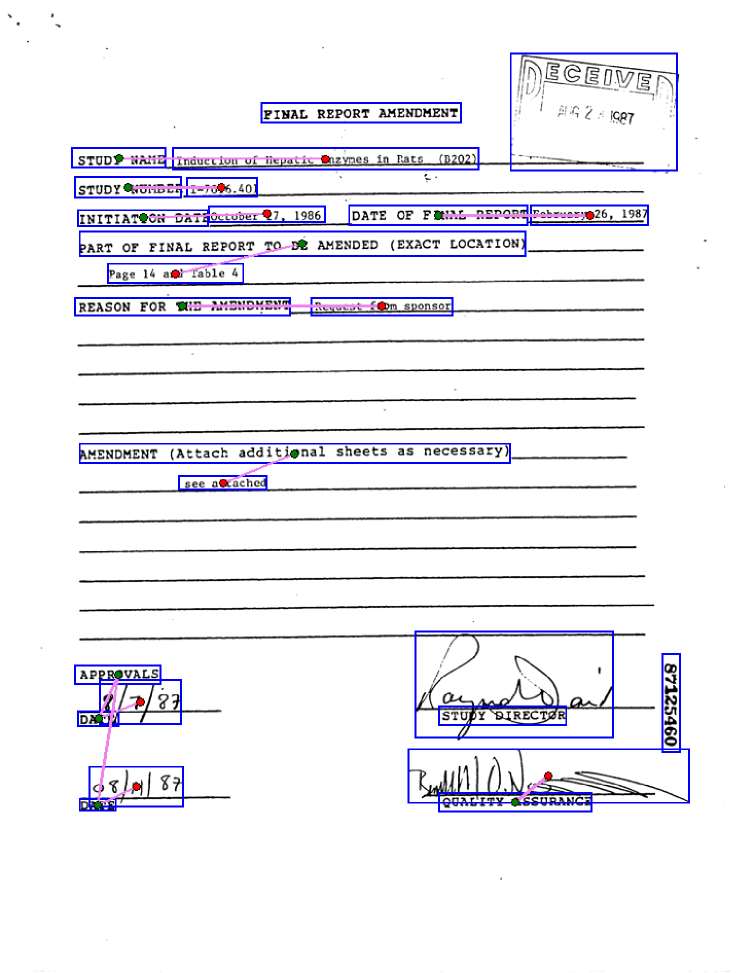 RECEIVED
AUG 2 1987
FINAL REPORT AMENDMENT
STUDY NAME Induction of Hepatic Enzymes in Rats (B202)
STUDY NUMBER I-7066.401
INITIATION DATE October 27, 1986 DATE OF FINAL REPORT February 26, 1987
PART OF FINAL REPORT TO BE AMENDED (EXACT LOCATION)
Page 14 and Table 4
REASON FOR THE AMENDMENT Request from sponsor
AMENDMENT (Attach additional sheets as necessary)
see attached
APPROVALS
8/7/87
DATE
STUDY DIRECTOR
87125460
DATE
QUALITY ASSURANCE